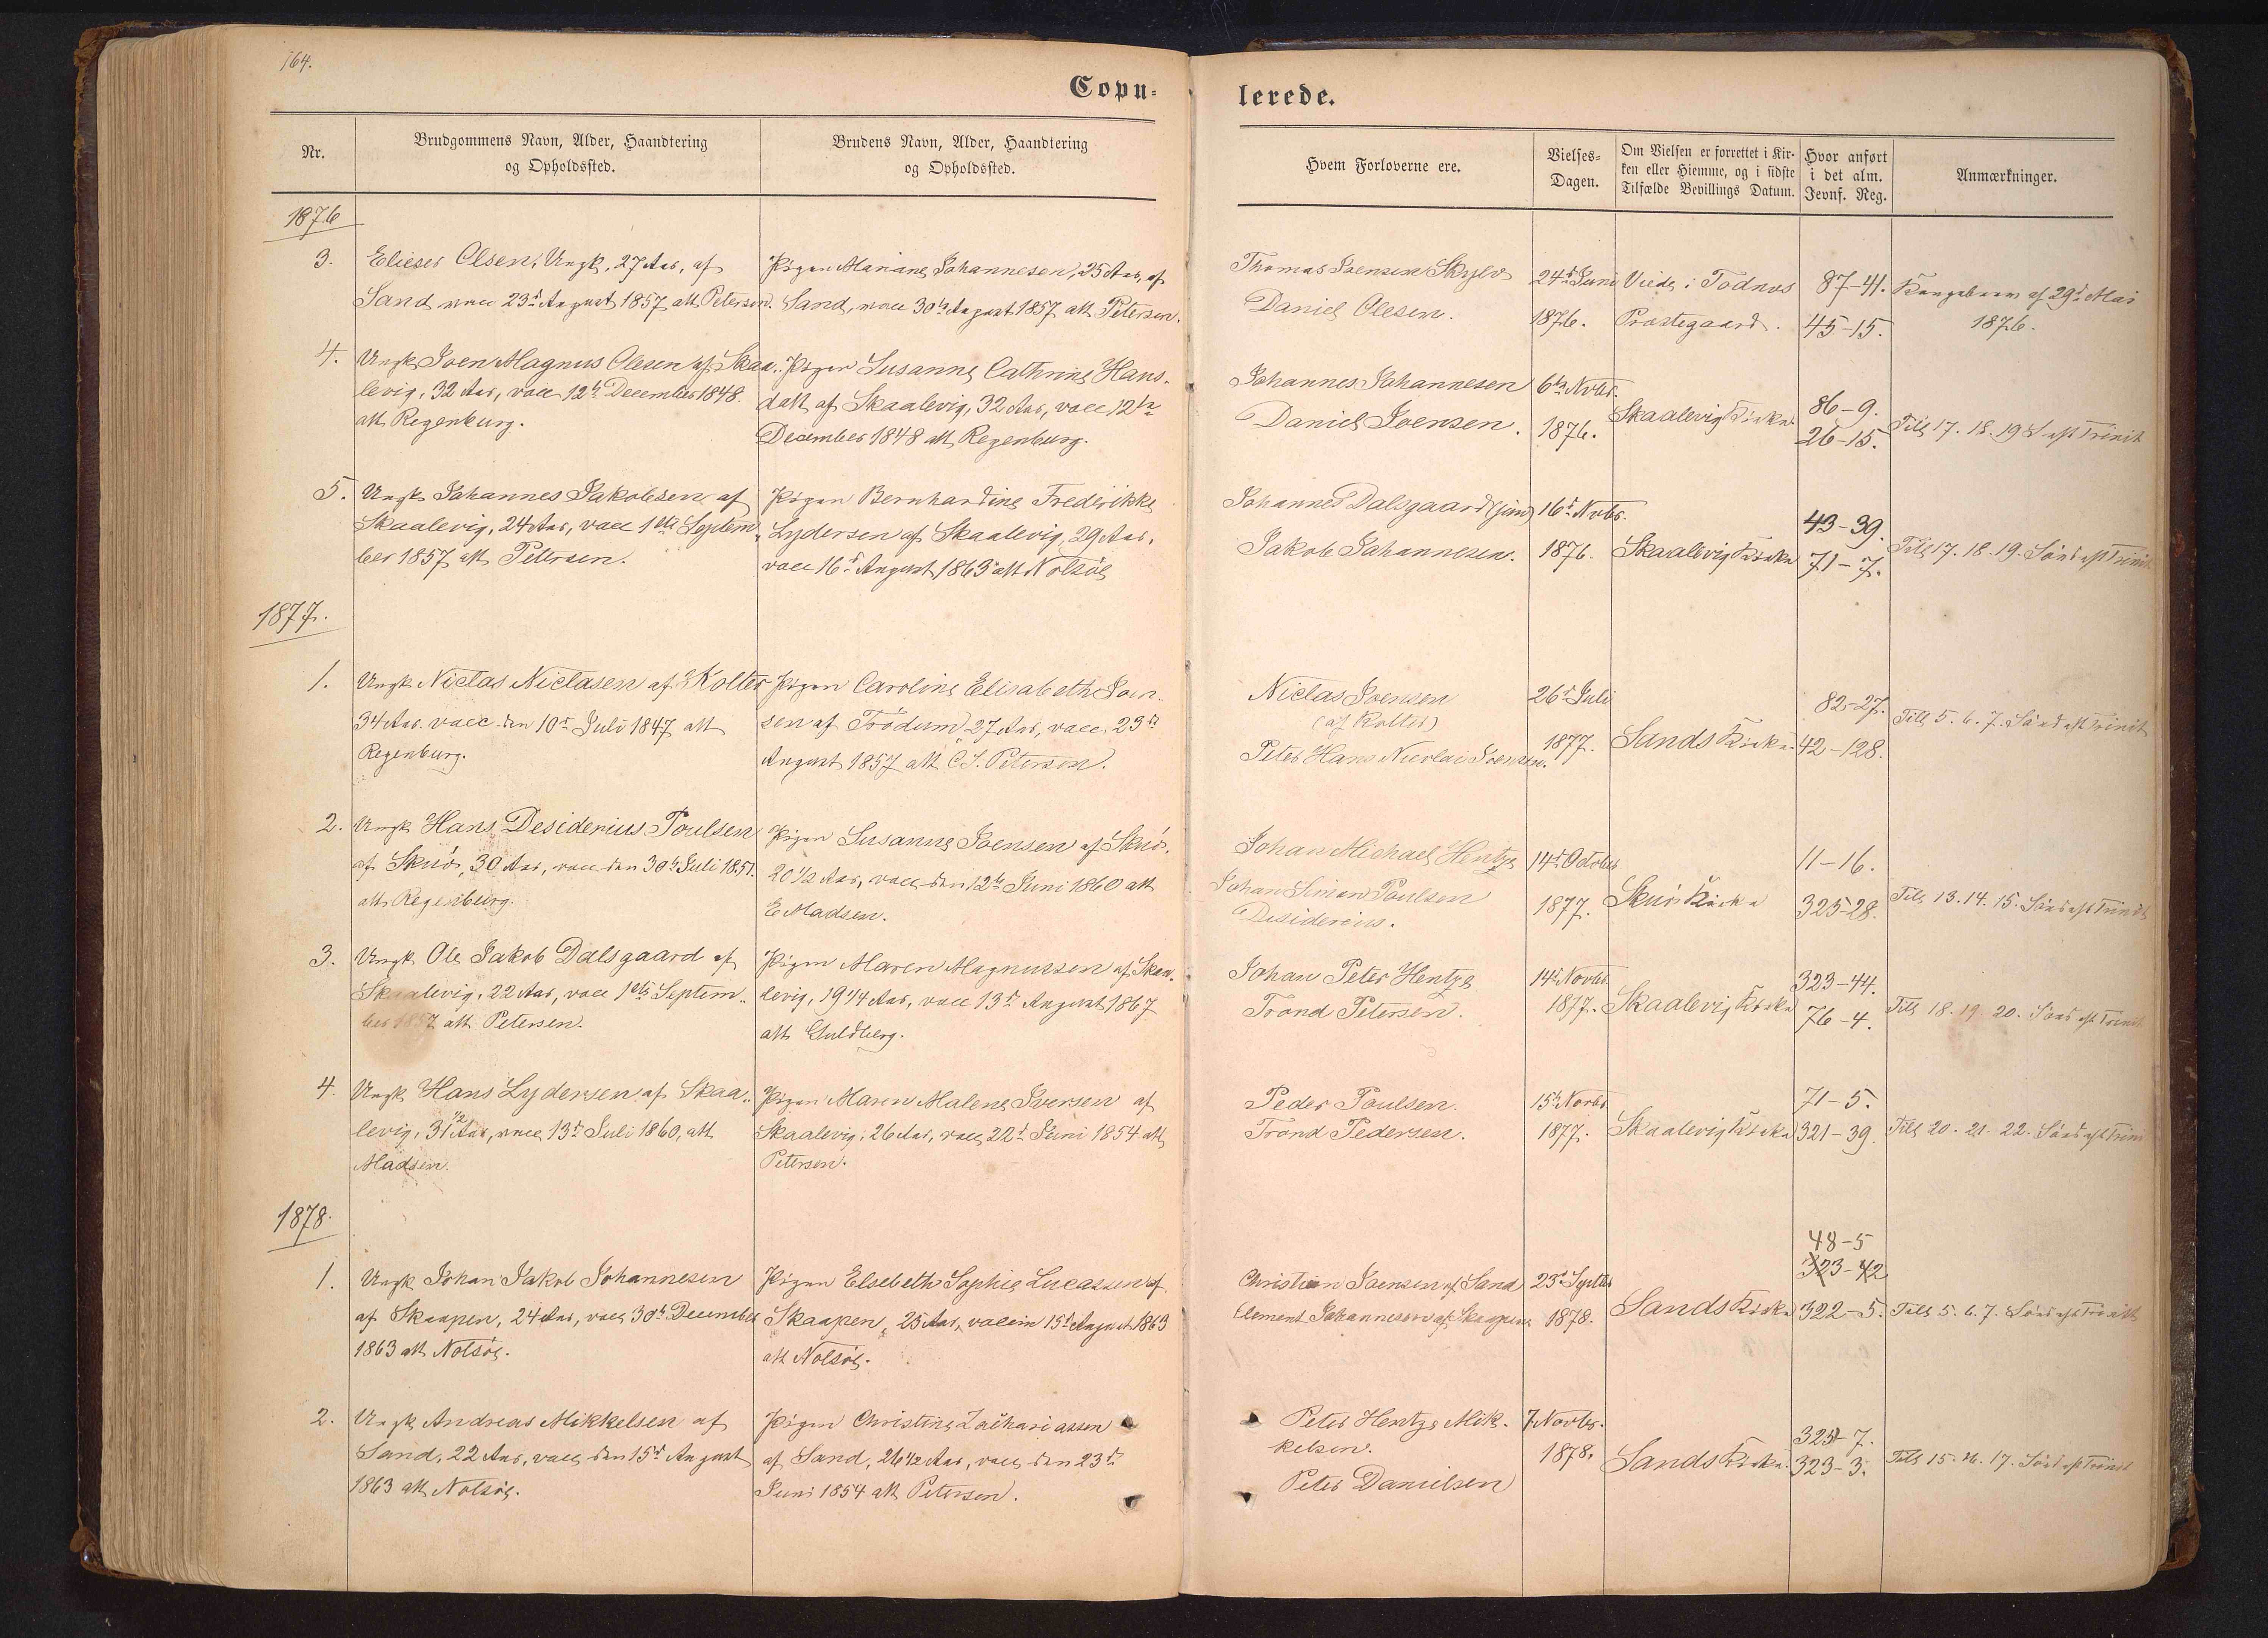 164.
Copu-
lerede.
Nr.
Brudgommens Navn, Alder, Haandtering
og Opholdssted.
Brudens Navn, Alder, Haandtering
og Opholdssted.
Hvem Forloverne ere.
Vielses-
Dagen.
Om Vielsen er forrettet i Kir-
ken eller Hiemme, og i sidste
Tilfælde Bevillings Datum.
Hvor anført
i det alm.
Jevnf. Reg.
Anmærkninger.
1876
3.
Elieser Olsen, Ungk, 27 Aar, af
Sand, vacc 23d August 1857 att Petersen.
Pigen Mariane Johannesen, 25 Aar, af
Sand, vacc 30te August 1857 att Petersen.
Thomas Joensen Skylv
Daniel Olesen.
24d Juni
1876.
Viede i Todnæs
Præstegaard.
87-41.
45-15.
Kongebrev af 29d Mai
1876.
4.
Ungk Joen Magnus Olesen af Skaa-
levig, 32 Aar, vacc 12te December 1848
att Regenburg.
Pigen Susanne Cathrine Hans-
datt af Skaalevig, 32 Aar, vacc 12te
December 1848 att Regenburg.
Johannes Johannesen
Daniel Joensen.
6te Novbr.
1876.
Skaalevig Kirke
86-9.
26-15.
Till 17. 18. 19 S eft Trinit
5.
Ungk Johannes Jakobsen af
Skaalevig, 24 Aar, vacc 1ste Septem-
ber 1857 att Petersen.
Pigen Bernhardine Frederikke
Lydersen af Skaalevig, 29 Aar,
vacc 16d August 1863 att Nolsøe
Johannes Dalsgaard (jun)
Jakob Johannesen.
16d Novbr.
1876.
Skaalevig Kirke
43-39.
71-7.
Till 17. 18. 19. Sønd eft Trinit
1877.
1.
Ungk Niclas Niclasen af Kolter
34 Aar vacc den 10d Juli 1847 att
Regenburg.
Pigen Caroline Elisabeth Joen-
sen af Trödum 27 Aar, vacc. 23d
August 1857 att C. J. Petersen.
Niclas Joensen
(af Kolter)
Peter Hans Nicolai Joensen.
26d Juli
1877.
Sands Kirke
82-27.
42-128.
Till 5. 6. 7. Sønd eft Trinit
2.
Ungk Hans Desiderius Poulsen
af Skuø, 30 Aar, vacc den 30te Juli 1851.
att Regenburg.
Pigen Susanne Joensen af Skuø,
20 1/2 Aar, vacc den 12te Juni 1860 att
E Madsen.
Johan Michael Hentze
Johan Simon Poulsen
Desiderius.
14d October
1877.
Skuø Kirke
11-16.
325-28.
Till 13. 14. 15. Sønd eft Trinit
3.
Ungk Ole Jakob Dalsgaard af
Skaalevig, 22 Aar, vacc 1ste Septem-
ber 1857 att Petersen.
Pigen Maren Magnussen af Skaa-
levig, 19 1/4 Aar, vacc 13d August 1867
att Guldberg.
Johan Peter Hentze
Trond Petersen.
14d Novbr
1877.
Skaalevig Kirke
323-44.
76-4.
Till 18. 19. 20. Sønd eft Trinit
4.
Ungk Hans Lydersen af Skaa-
levig, 31 1/2 Aar, vacc 13d Juli 1860, att
Madsen.
Pigen Maren Malene Iversen af
Skaalevig, 26 Aar, vacc 22d Juni 1854 att
Petersen.
Peder Poulsen.
Trond Pedersen.
15d Novbr
1877.
Skaalevig Kirke
71-5.
321-39.
Till 20. 21. 22. Sønd eft Trini
1878.
1.
Ungk Johan Jakob Johannesen
af Skaapen, 24 Aar, vacc 30te December
1863 att Nolsøe.
Pigen Elsebeth Sophie Lucassen af
Skaapen, 25 Aar, vaccin 15d August 1863
att Nolsøe.
Christian Joensen af Sand
Clement Johannesen af Skaapen
23d Septbr
1878.
Sands Kirke
48-5
323-42
322-5.
Till 5. 6. 7. Sønd eft Trinit
2.
Ungk Andreas Mikkelsen af
Sand, 22 Aar, vacc den 15d August
1863 att Nolsøe.
Pigen Christine Zachariassen
af Sand, 26 1/2 Aar, vacc den 23d
Juni 1854 att Petersen.
Peter Hentze Mik-
kelsen.
Peter Danielsen
7 Novbr.
1878.
Sands Kirke.
323-3.
Till 15. 16. 17. Sønd eft Trinit